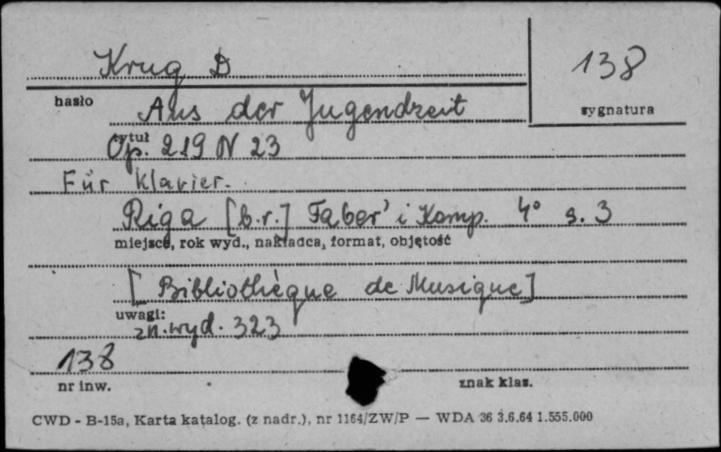 Krug D
138
hasło
Aus der Jugendzeit
sygnatura
tytuł
Op. 219 N 23
Für Klavier.
Riga [b.r.] Faber' i Komp. 4° s. 3
miejsce, rok wyd., nakładca, format, objętość
[Bibliothèque de Musique]
uwagi:
zn. wyd. 323
138
nr inw.
znak klas.
CWD - B-15a, Karta katalog. (z nadr.), nr 1164/ZW/P — WDA 36 3.6.64 1.555.000